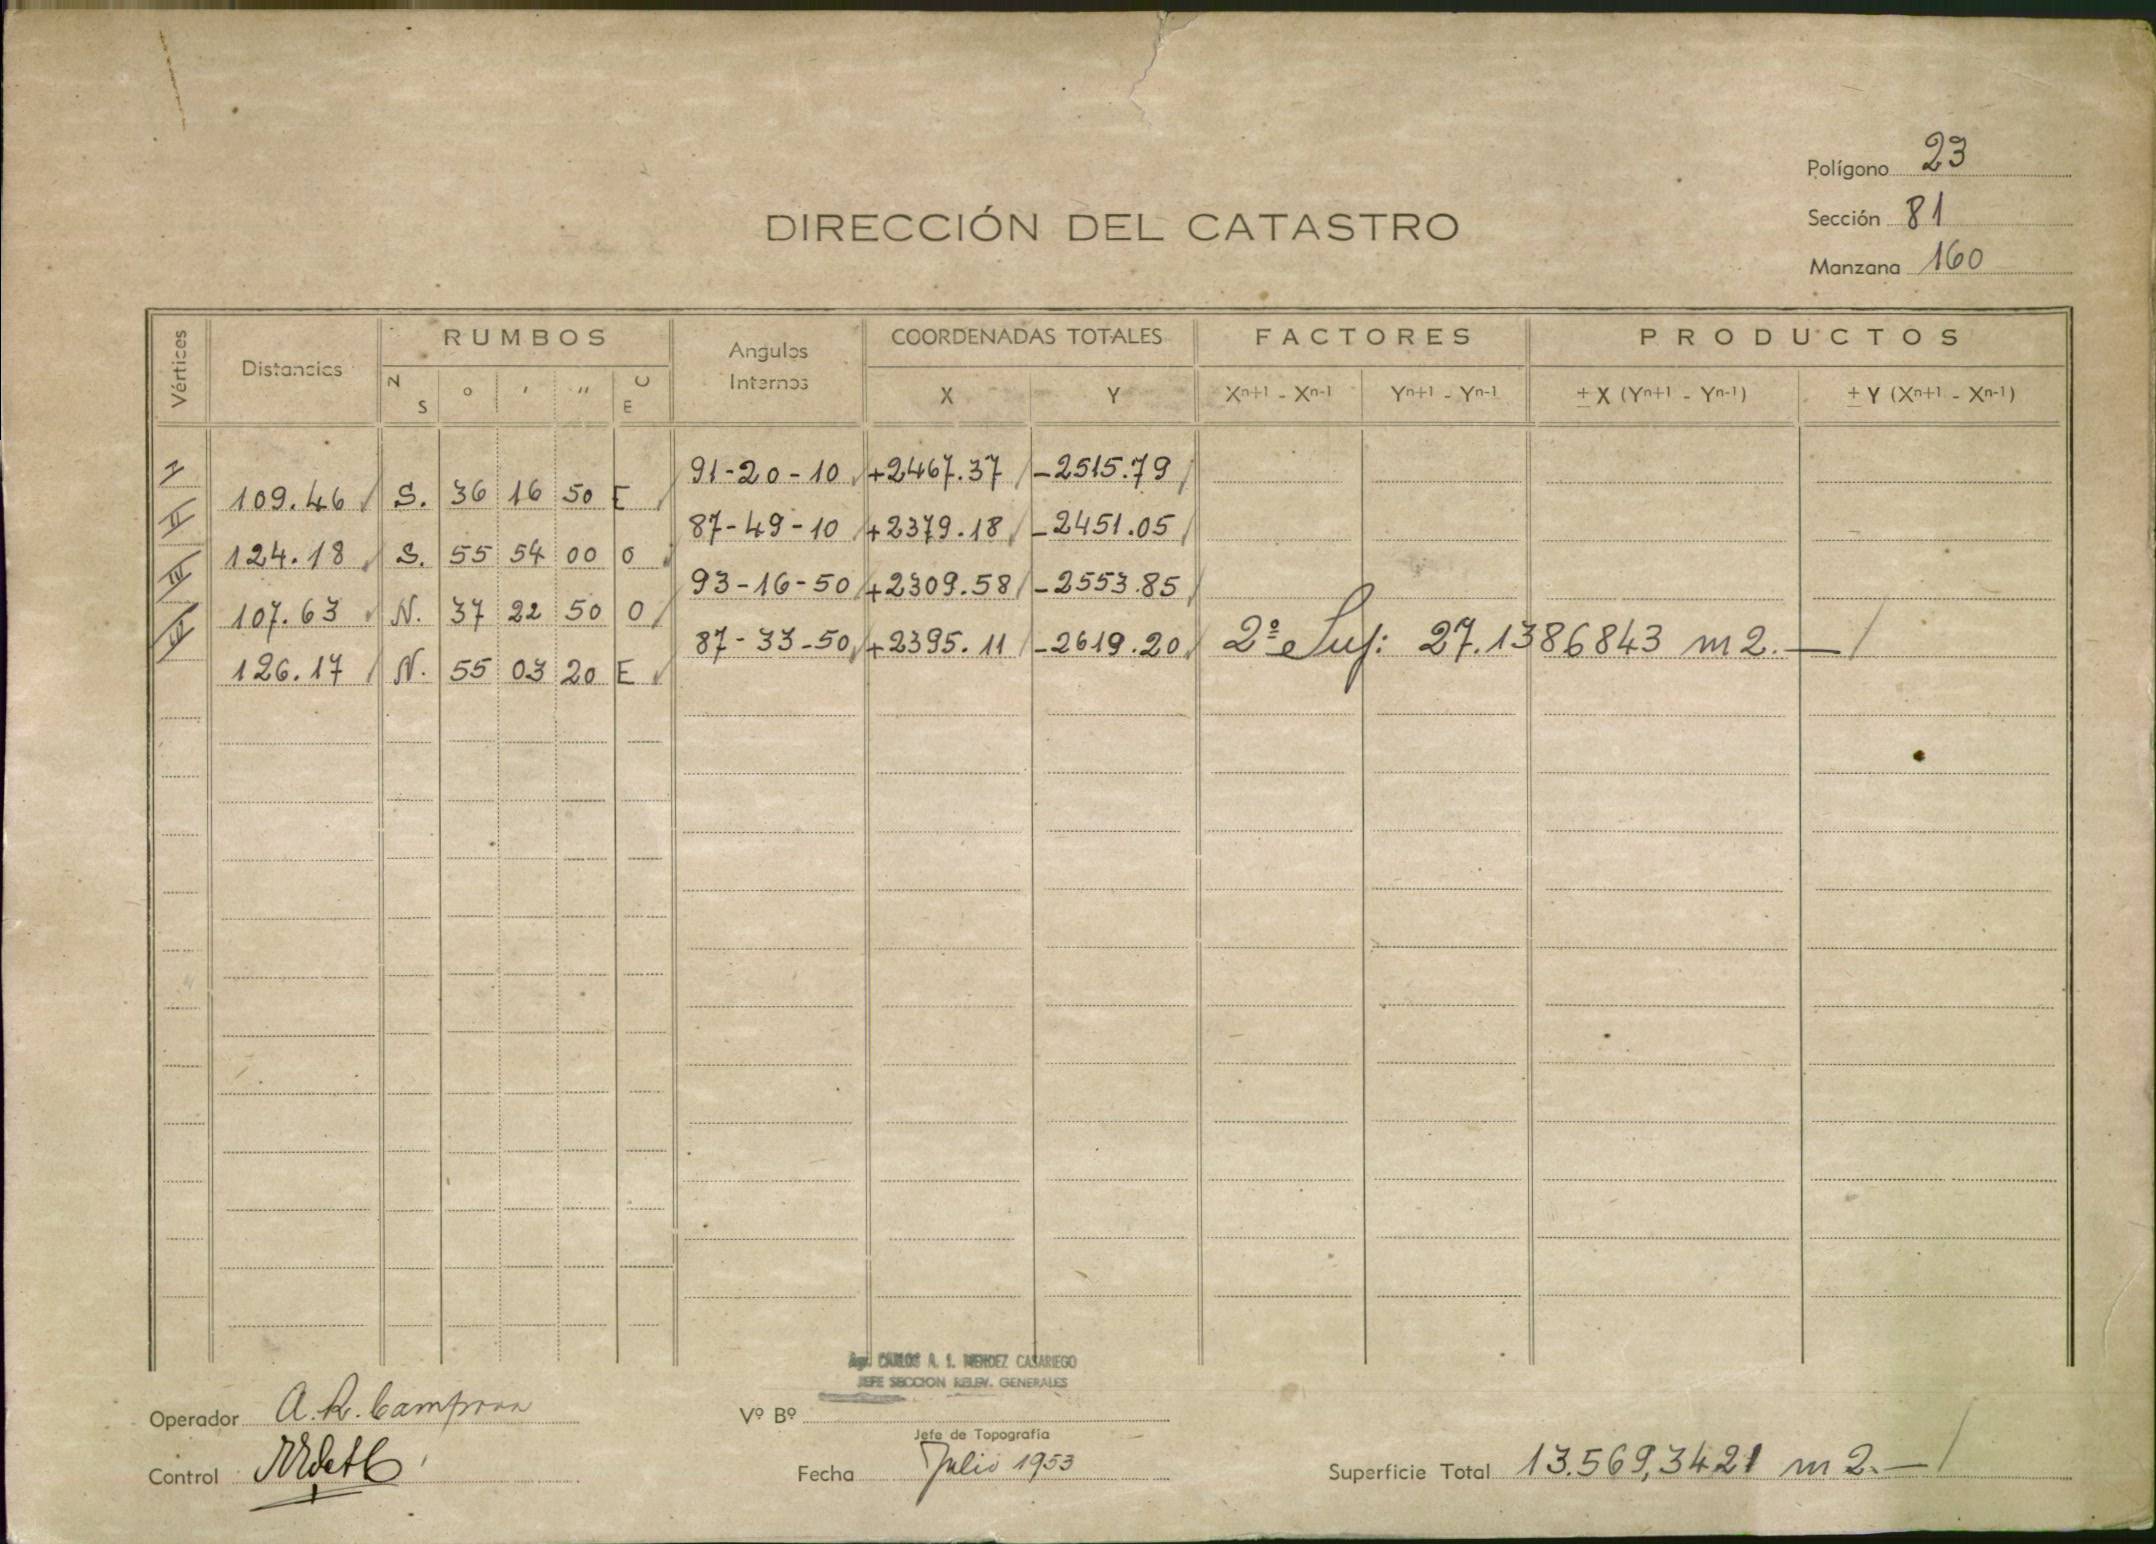 Polígono 23
DIRECCIÓN DEL CATASTRO
Sección 81
Manzana 160
Vértices Distancias RUMBOS Angulos Internos COORDENADAS TOTALES FACTORES PRODUCTOS
N S ° ' " O E X Y Xn+1 - Xn-1 Yn+1 - Yn-1 ± X (Yn+1 - Yn-1) ± Y (Xn+1 - Xn-1)
I 91-20-10 +2467.37 -2515.79
109.46 S. 36 16 50 E
II 87-49-10 +2379.18 -2451.05
124.18 S. 55 54 00 O
III 93-16-50 +2309.58 -2553.85
107.63 N. 37 22 50 O
IV 87-33-50 +2395.11 -2619.20 2ª Sup: 27.1386843 m2.—
126.17 N. 55 03 20 E
Agr. CARLOS A. I. MENDEZ CASARIEGO
JEFE SECCION RELEV. GENERALES
Operador A. R.
Vº Bº
Jefe de Topografía
Control
Fecha Julio 1953
Superficie Total 13.569,3421 m2.—